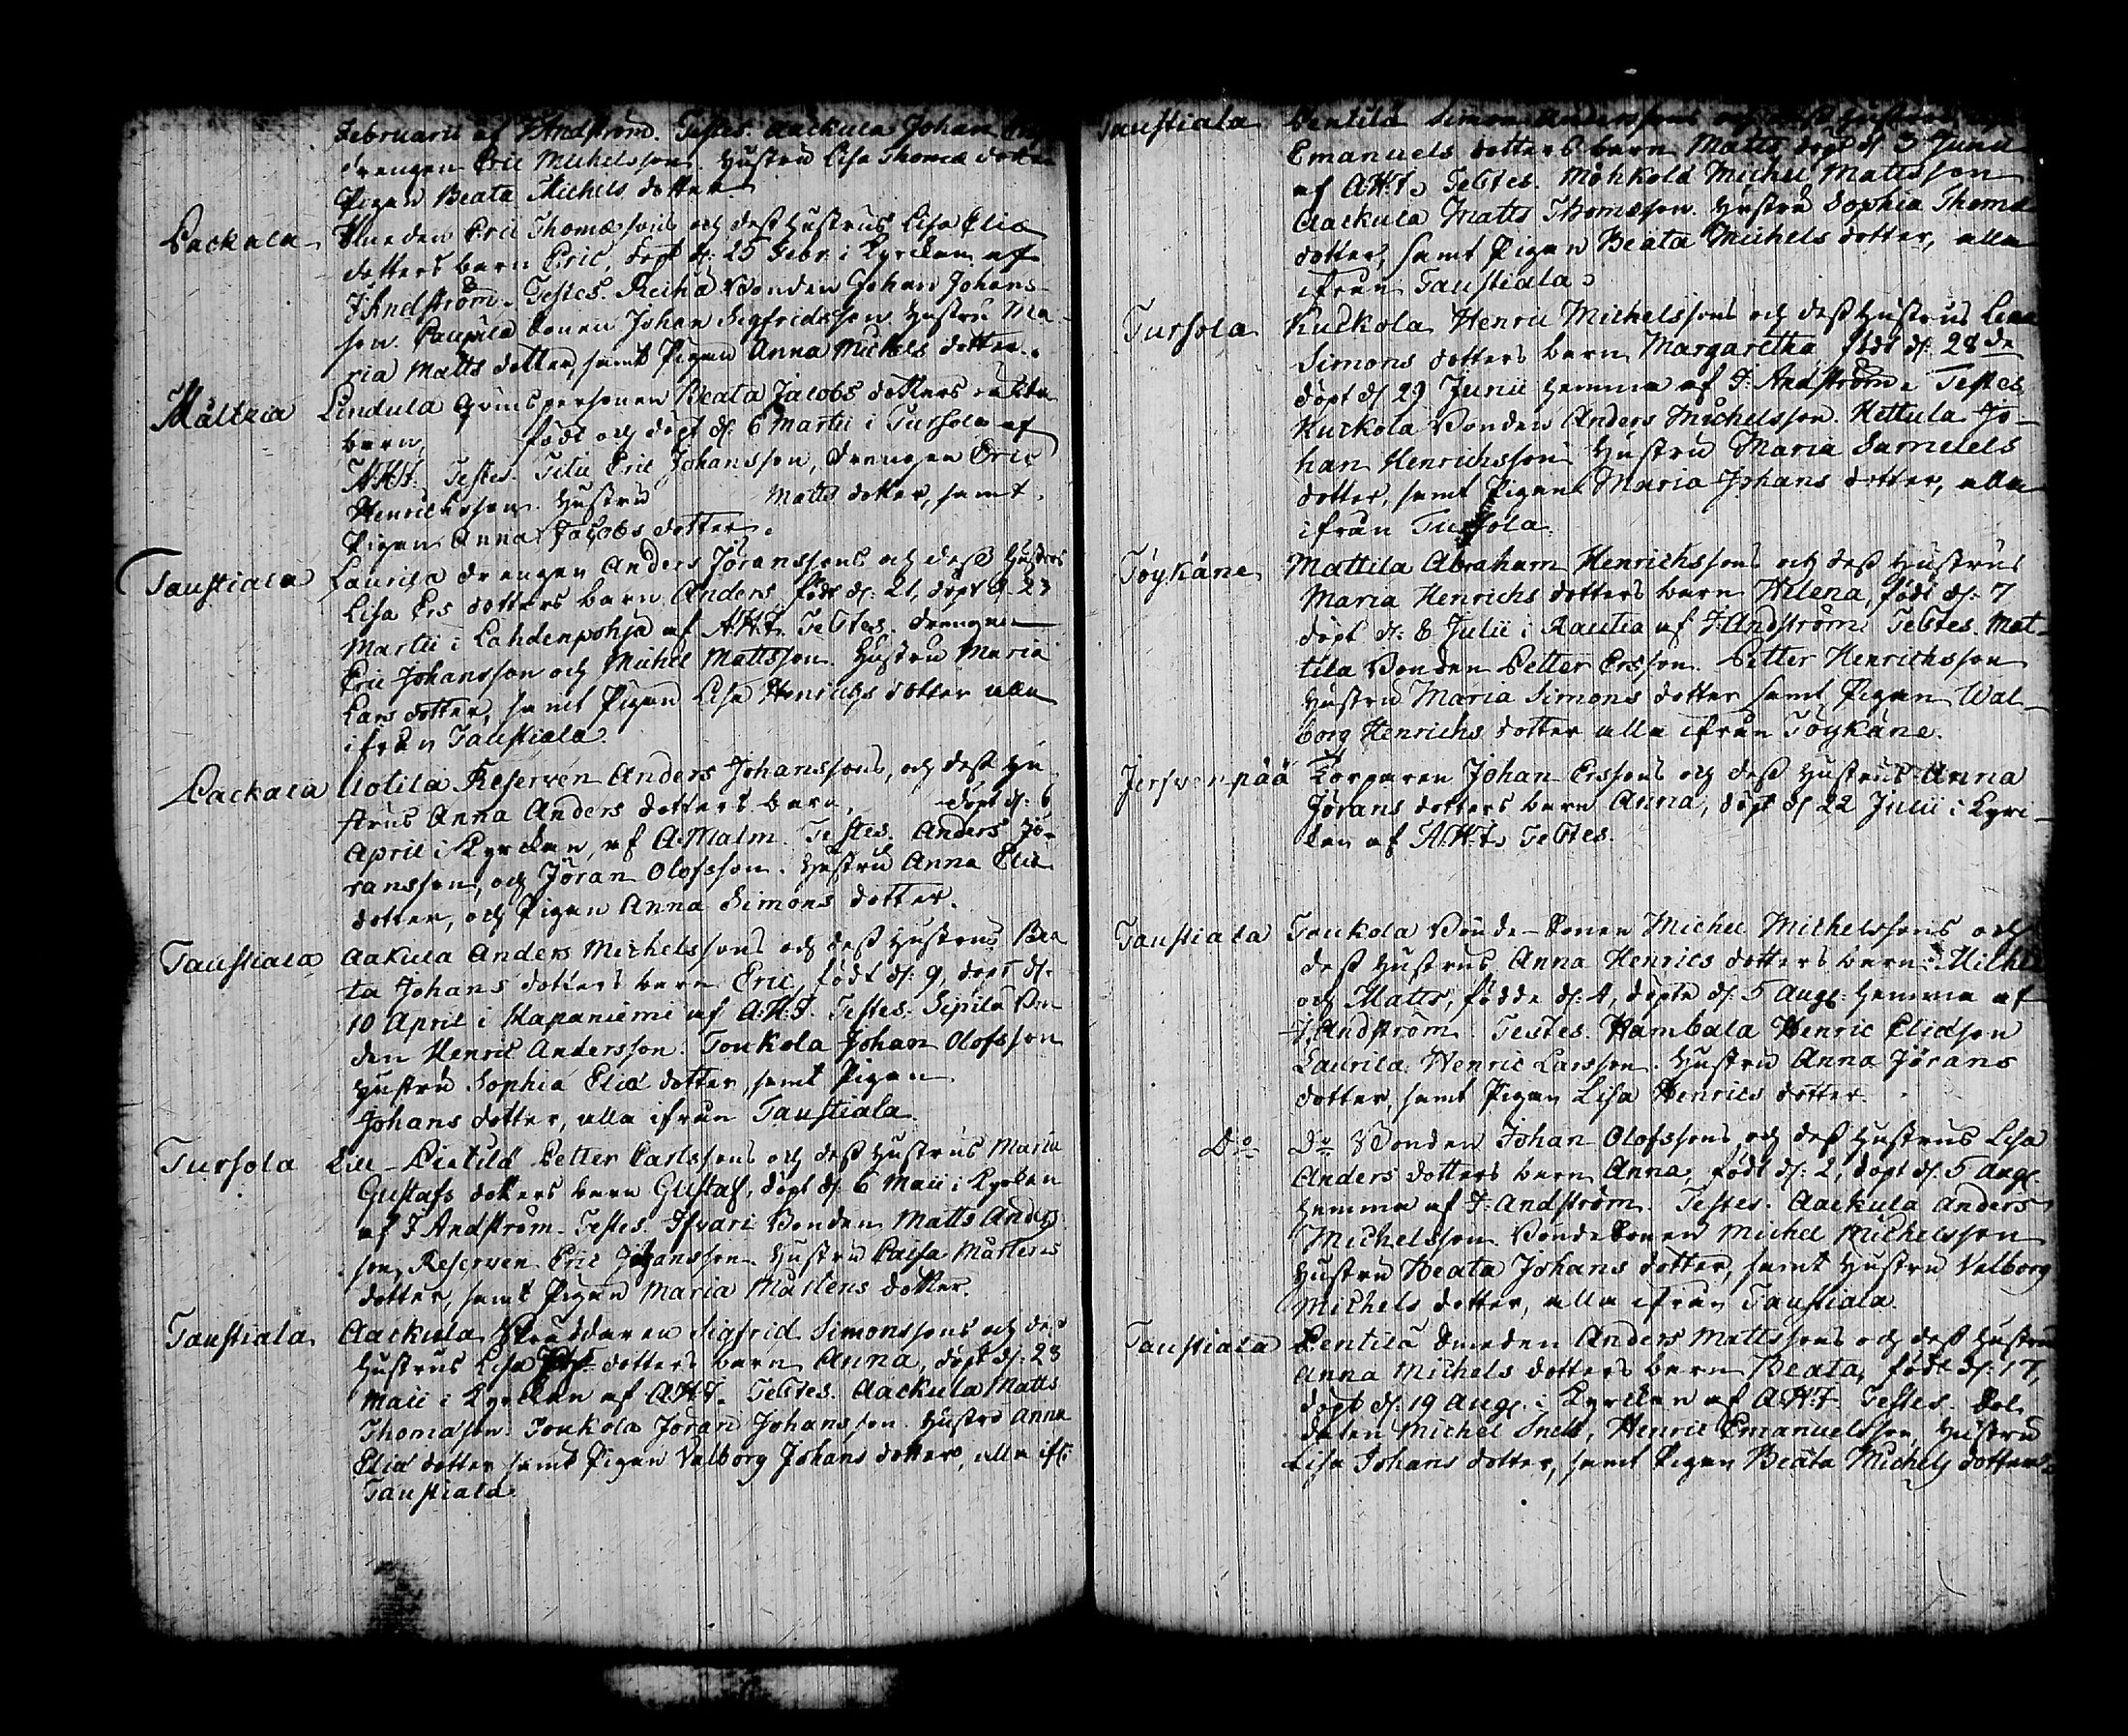 Februarii af J Andström. Testes. Aackula Johan
drengen Eric Michelsson. Hustru Lisa Thomæ dotter
Pigan Beata Michels dotter
Packala Eric Thomæssons och dess Hustrus Lisa Eliæ
dotters barn Eric, döpt d: 25 Febr: i Kyrckan af
J Andström. Testes. Reiha Bonden Johan Johans-
son. Sonen Johan Sigfridsson. Hustru Ma-
ria Matts dotter, samt Pigan Anna Michels dotter.
Mältiä Lindula qvinspersonen Beata Jacobs dotters oächta
barn, född och döpt d: 6 Martii i Tursola af
A.H.T. Testes. Eric Johansson, drengen Eric
Henricksson. Hustru Matts dotter, samt
Pigan Anna Jacobs dotter.
Taustiala Laurila drengen Anders Jöranssons och dess Hustrus
Lisa Ers dotters barn Anders född d: 21, döpt d 23
Martii i Lahdenpohja af A.H.T. Testes. drengen
Eric Johansson och Michel Mattsson. Hustru Maria
Lars dotter, samt Pigan Lisa Henrichs dotter alla
ifrån Taustiala.
Packala Uotila Reserven Anders Johanssons, och dess Hu-
strus Anna Anders dotters barn, döpt d: 6
April i Kyrckan, af A. Malm. Testes. Anders Jö-
ransson, och Jöran Olofsson. Hustru Anna Eliæ
dotter, och Pigan Anna Simons dotter.
Taustiala Aakula Anders Michelssons och dess Hustrus Bea
ta Johans dotters barn Eric, född d: 9, döpt d:
10 April i Hapaniemi af A.H.T. Testes. Sipilä Bon
den Henric Andersson. Toukola Johan Olofsson
Hustru Sophia Eliæ dotter, samt Pigan
Johans dotter, alla ifrån Taustiala.
Tursola Lill-Pietilä Petter Carlssons och dess Hustrus Maria
Gustafs dotters barn Gustaf, döpt d: 6 Maii i Kyrkan
af J Andström. Testes. Bonden Matts Anders
son, Reserven Eric Johansson. Hustru Caisa Mårtens
dotter, samt Pigan Maria Mårtens dotter.
Taustiala Aackula Skräddaren Sigfrid Simonssons och dess
Hustrus Lisa dotters barn Anna, döpt d: 28
Maii i Kyrckan af A.H.T. Testes. Aackula Matts
Thomæson. Toukola Jöran Johansson. Hustru Anna
Eliæ dotter samt Pigan Valborg Johans dotter, alla ifr:
Taustiala.
Taustiala Pentilä Simon Anderssons och dess Hustrus
Emanuels dotters barn Matts döpt d 3 Junii
af A.H.T. Testes. Mohkola Michel Mattsson
Aackula Matts Thomæson. Hustru Sophia Thomæ
dotter, samt Pigan Beata Michels dotter, alla
ifrån Taustiala.
Tursola Kuckola Henric Michelssons och dess Hustrus Lena
Simons dotters barn Margaretha född d: 28de
döpt d 29 Junii hemma af J. Andström. Testes
Kuckola Bonden Anders Michelsson. Hettula Jo-
han Henrichsson Hustru Maria Samuels
dotter, samt Pigan Maria Johans dotter, alla
ifrån Tursola.
Töykäne Mattila Abraham Henrichssons och dess Hustrus
Maria Henrichs dotters barn Helena, född d: 7
döpt d: 8 Julii i Rautia af J: Andström. Testes. Mat-
tila Bonden Petter Ersson. Petter Henrichsson
Hustru Maria Simons dotter samt Pigan Wal-
borg Henrichs dotter alla ifrån Töykäne.
Torparen Johan Erssons och dess Hustrus Anna
Jörans dotters barn Anna, döpt d 22 Julii i Kyrc-
kan af A.H.T. Testes.
Taustiala Toukola Bonde-Sonen Michel Michelssons och
dess Hustrus Anna Henrics dotters barn: Michel
och Matts, födde d: 4, döpte d: 5 Aug: hemma af
J, Andström. Testes. Hambala Henric Eliæson
Laurila Henric Larsson. Hustru Anna Jörans
dotter, samt Pigan Lisa Henrics dotter.
Do Do Bonden Johan Olofssons och dess Hustrus Lisa
Anders dotters barn Anna, född d: 2, döpt d: 5 Aug:
hemma af J. Andström. Testes. Aackula Anders
Michelsson. Bonde Sonen Michel Michelsson
Hustru Beata Johans dotter, samt Hustru Valborg
Michels dotter, alla ifrån Taustiala.
Taustiala Pentilä Smeden Anders Mattssons och dess Hustrus
Anna Michels dotters barn Beata, född d: 17,
döpt d: 19 Aug: i Kyrckan af A.H.T. Testes. Sol-
daten Michel Snell, Henric Emanuelsson, Hustru
Lisa Johans dotter, samt Pigan Beata Michels dotter.